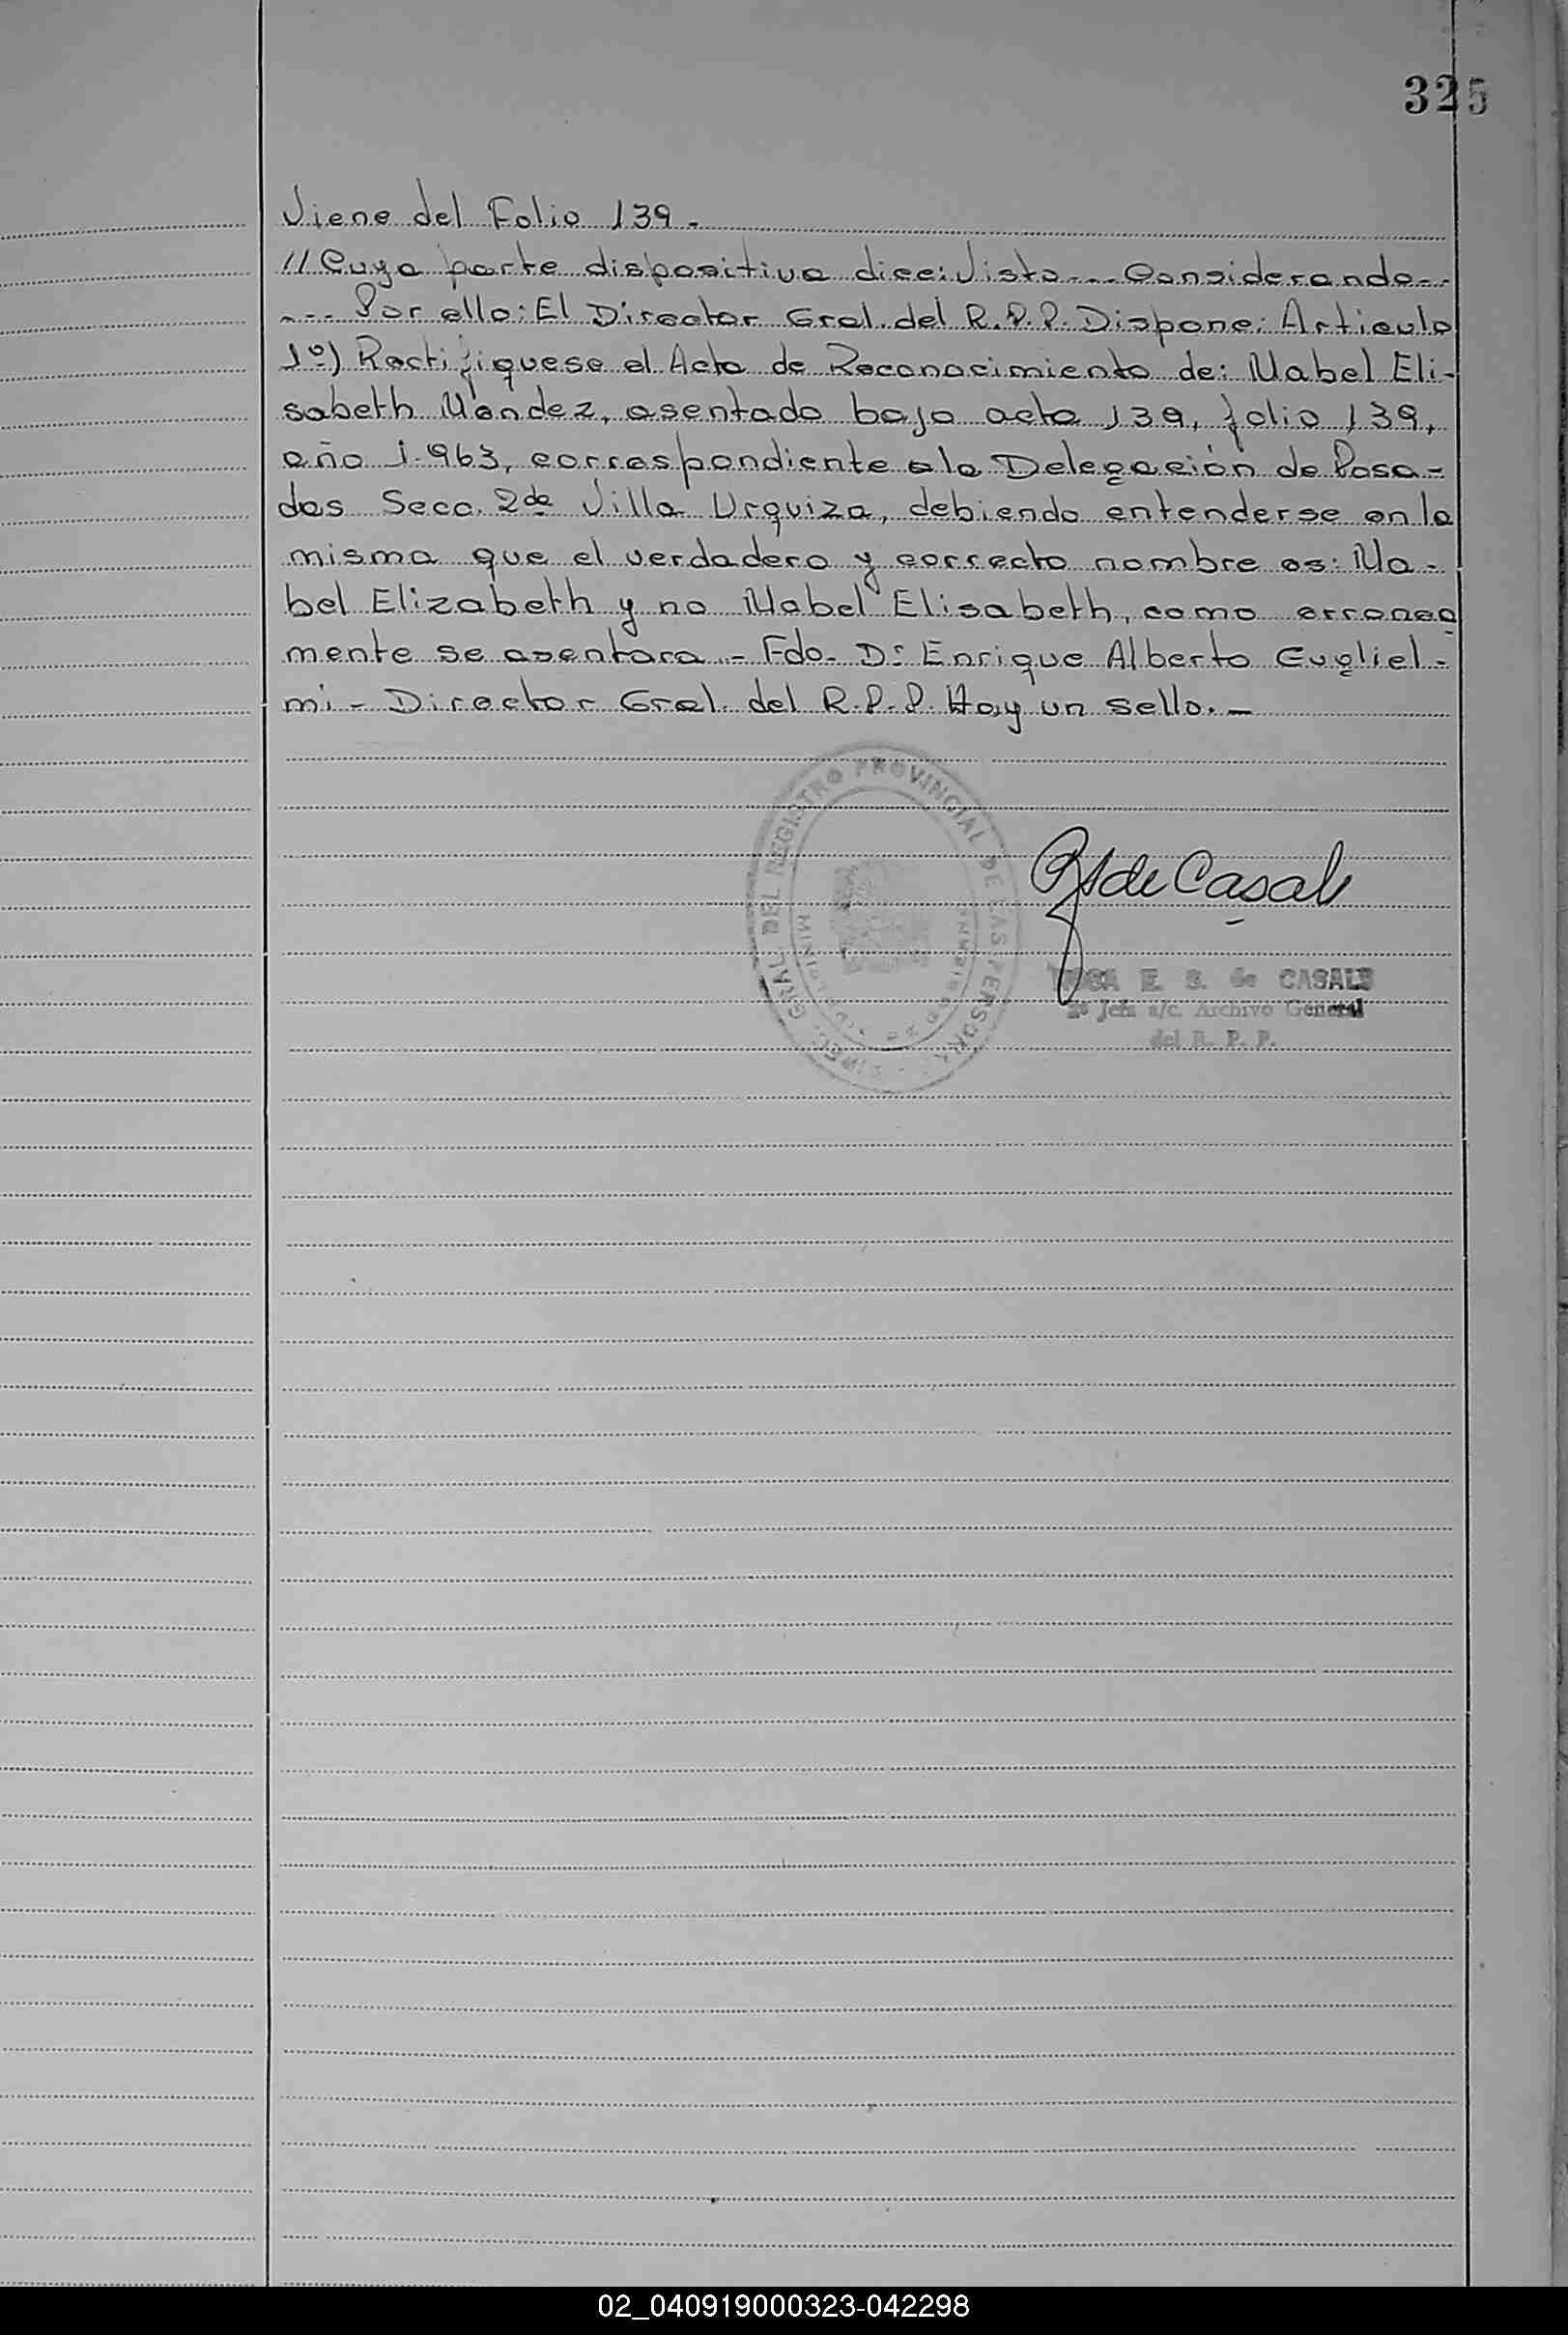 325
Viene del Folio 139.-
// Cuya parte dispositiva dice: Visto --- Considerando --
--- Por ello: El Director Gral. del R.P.P. Dispone: Articulo
1º) Rectifiquese el Acta de Reconocimiento de: Mabel Eli-
sabeth Mendez, asentado bajo acta 139, folio 139,
año 1.963, correspondiente a la Delegación de Posa-
das Secc. 2da Villa Urquiza, debiendo entenderse en la
misma que el verdadero y correcto nombre es: Ma-
bel Elizabeth y no Mabel Elisabeth, como erronea
mente se asentara.- Fdo. Dr Enrique Alberto Gugliel-
mi - Director Gral. del R.P.P. Hay un sello.-
GRAL. DEL REGISTRO PROVINCIAL DE LAS PERSONAS
de Casals
E. S. de CASALS
2º Jefe a/c. Archivo General
del R. P. P.
02_040919000323-042298